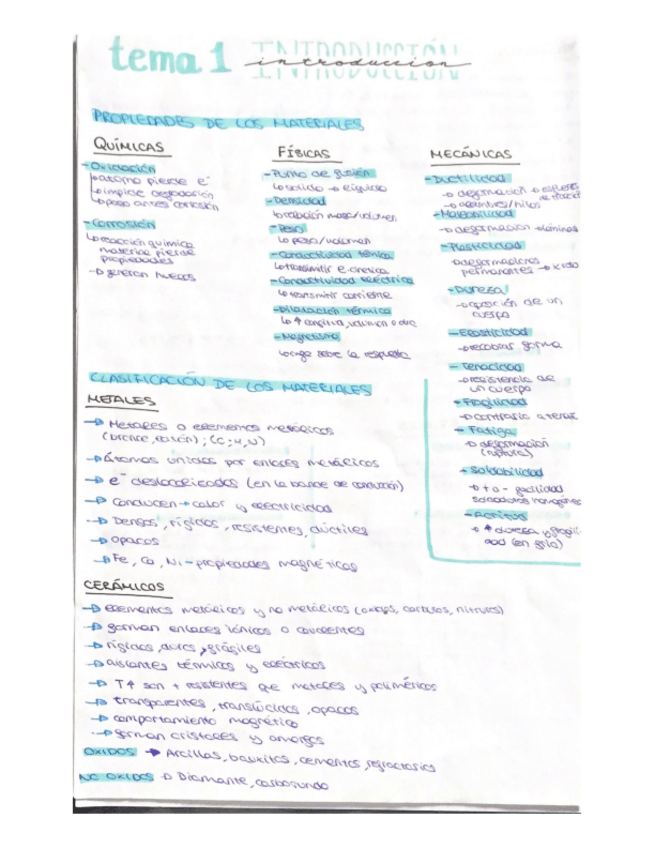 tema 1 INTRODUCCIÓN introducción
PROPIEDADES DE LOS MATERIALES
QUÍMICAS
- Oxidación
↳ átomo pierde e⁻
↳ impide degradación
↳ paso antes corrosión
- Corrosión
↳ reacción química
material pierde
propiedades
→ generan huecos
FÍSICAS
- Punto de fusión
↳ sólido → líquido
- Densidad
↳ relación masa/volumen
- Peso
↳ peso/volumen
- Conductividad térmica
↳ transmitir e. cinética
- Conductividad eléctrica
↳ transmitir corriente
- Dilatación térmica
↳ ↑ longitud, volumen o otra
- Magnetismo
MECÁNICAS
- Ductilidad
→ deformación → esfuerzo
→ alambres/hilos
- Maleabilidad
→ deformación → láminas
- Plasticidad
→ deformaciones
permanentes →
- Dureza
→ oposición de un
cuerpo
- Elasticidad
→ recobrar forma
- Tenacidad
→ resistencia de
un cuerpo
- Fragilidad
→ contrario a tenac
- Fatiga
→ deformación
(ruptura)
- Soldabilidad
→ + o - facilidad
soldaduras homogéneas
- Acritud
→ ↑ dureza y fragili-
dad (en frío)
CLASIFICACIÓN DE LOS MATERIALES
METALES
→ Metales o elementos metálicos
(bronce, latón);
→ Átomos unidos por enlaces metálicos
→ e⁻ deslocalizados (en la banda de conducción)
→ Conducen → calor y electricidad
→ Densos, rígidos, resistentes, dúctiles
→ opacos
→ Fe, Co, Ni - propiedades magnéticas
CERÁMICOS
→ elementos metálicos y no metálicos (óxidos, carburos, nitruros)
→ forman enlaces iónicos o covalentes
→ rígidos, duros, frágiles
→ aislantes térmicos y eléctricos
→ T↑ son + resistentes que metales y poliméricos
→ transparentes, translúcidos, opacos
→ comportamiento magnético
→ forman cristales y amorfos
OXIDOS → Arcillas, bauxitas, cementos, refractarios
NO OXIDOS → Diamante, carborundo